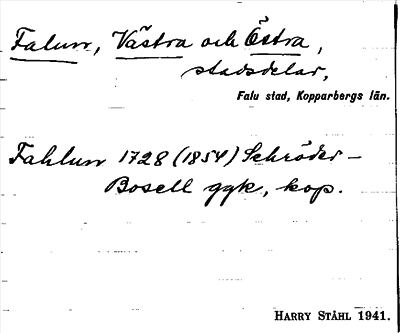 Falun, Västra och Östra,
stadsdelar,
Falu stad, Kopparbergs län.
Fahlun 1728 (1854) Schröder –
Bosell gyk, kop.
HARRY STÅHL 1941.